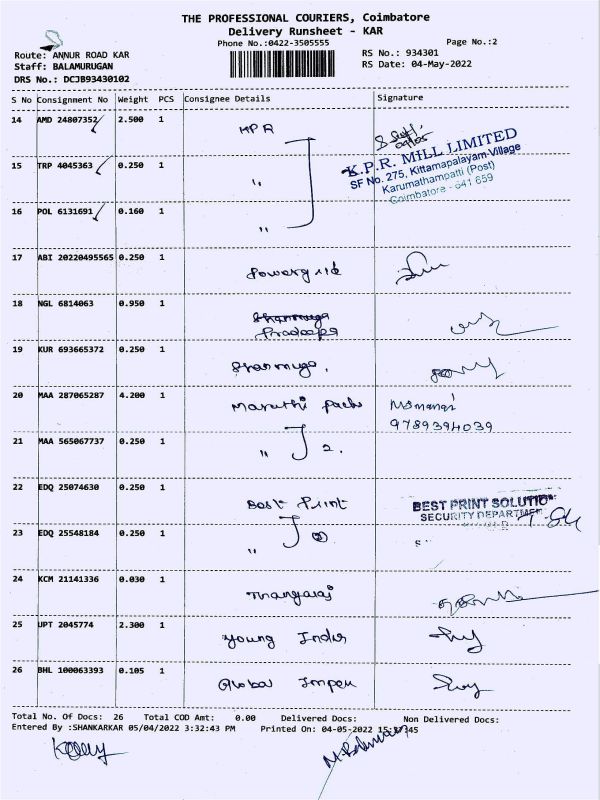 THE PROFESSIONAL COURIERS, Coimbatore
Delivery Runsheet - KAR
Phone No.:0422-3505555
Page No.:2
Route: ANNUR ROAD KAR
RS No.: 934301
Staff: BALAMURUGAN
RS Date: 04-May-2022
DRS No.: DCJB93430102
S No Consignment No Weight PCS Consignee Details Signature
14 AMD 24807352 2.500 1 KPR
K.P.R. MILL LIMITED
SF No. 275, Kittampalayam Village
Karumathampatti (Post)
Coimbatore - 641 659
15 TRP 4045363 0.250 1 "
16 POL 6131691 0.160 1 "
17 ABI 20220495565 0.250 1 Powergrid
18 NGL 6814063 0.950 1 Shanmuga
Pradeepa
19 KUR 693665372 0.250 1 Shanmuga.
20 MAA 287065287 4.200 1 Maruthi packs
9789394039
21 MAA 565067737 0.250 1 " 2.
22 EDQ 25074630 0.250 1 Best Print
BEST PRINT SOLUTIO
SECURITY DEPARTME
23 EDQ 25548184 0.250 1 " 2
24 KCM 21141336 0.030 1 Thangaraj
25 UPT 2045774 2.300 1 Young India
26 BHL 100063393 0.105 1 Global Impex
Total No. Of Docs: 26 Total COD Amt: 0.00 Delivered Docs: Non Delivered Docs:
Entered By :SHANKARKAR 05/04/2022 3:32:43 PM Printed On: 04-05-2022 15:37:45